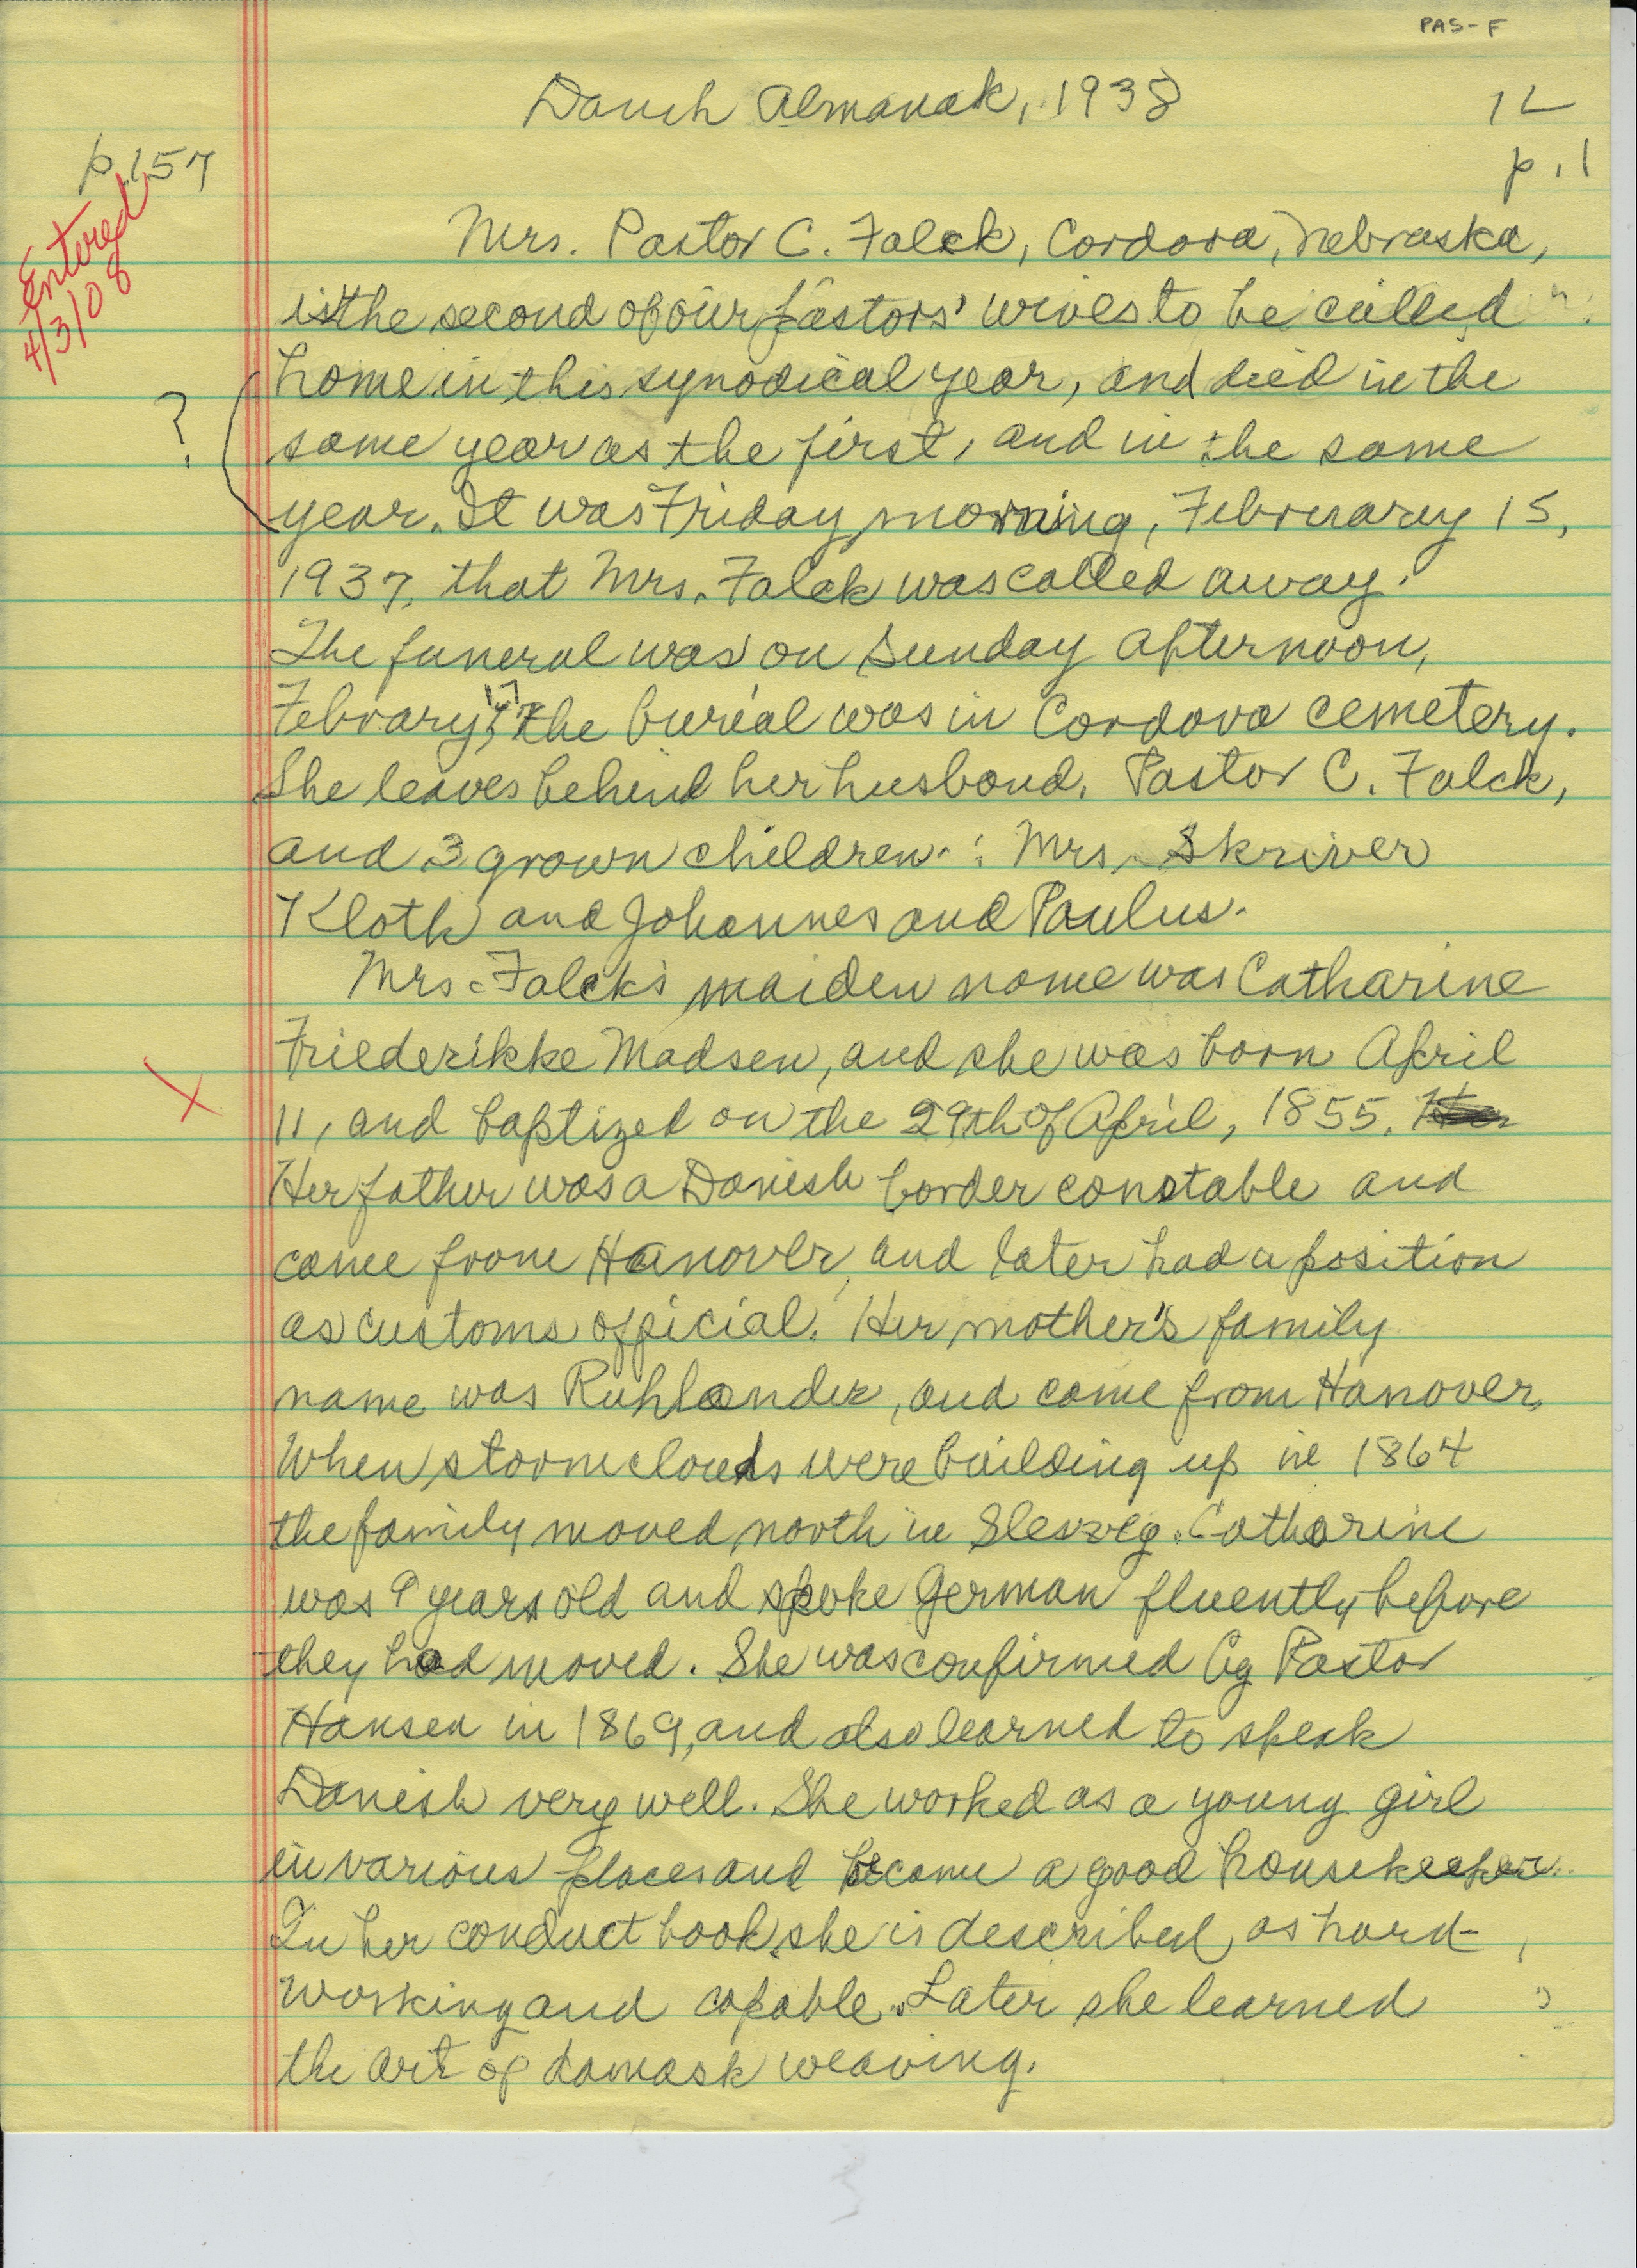 PAS-F
Dansk Almanak, 1938
p. 157
p. 1
Entered
4/3/08
Mrs. Pastor C. Falck, Cordova, Nebraska,
is the second of our pastors' wives to be called
home in this synodical year, and died in the
?
same year as the first, and in the same
year. It was Friday morning, February 15,
1937, that Mrs. Falck was called away.
The funeral was on Sunday afternoon,
Febrary 17, the burial was in Cordova cemetery.
She leaves behind her husband, Pastor C. Falck,
and 3 grown children: Mrs. Skriver
Kloth and Johannes and Paulus.
Mrs. Falck's maiden name was Catharine
Friederikke Madsen, and she was born April
X
11, and baptized on the 29th of April, 1855.
Her father was a Danish border constable and
came from Hanover, and later had a position
as customs official. Her mother's family
name was Ruhlander, and came from Hanover.
When stormclouds were building up in 1864
the family moved north in Slesvig. Catharine
was 9 years old and spoke German fluently before
they had moved. She was confirmed by Pastor
Hansen in 1869, and also learned to speak
Danish very well. She worked as a young girl
in various places and became a good housekeeper.
In her conduct book she is described as hard-
working and capable. Later she learned
the art of damask weaving.